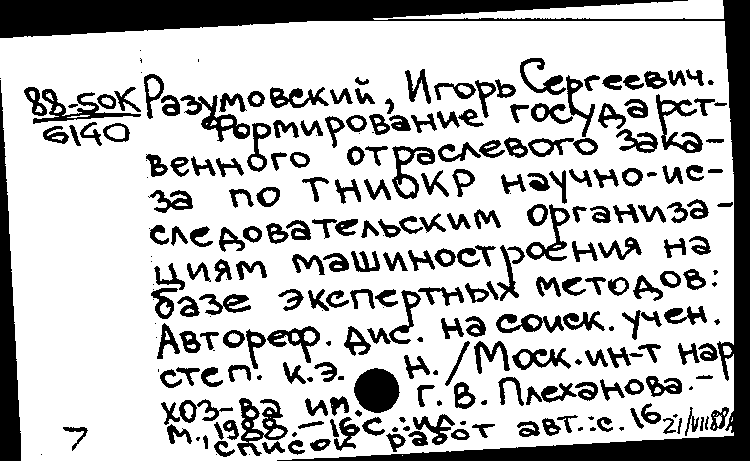 88-50К Разумовский, Игорь Сергеевич.
6140 Формирование государст-
венного отраслевого зака-
за по ТНИОКР научно-ис-
следовательским организа-
циям машиностроения на
базе экспертных методов:
Автореф. дис. на соиск. учен.
степ. к.э. н. / Моск. ин-т нар
хоз-ва им. Г. В. Плеханова. -
М., 1988. - 16с.: ил.
7 список работ авт.: с. 16